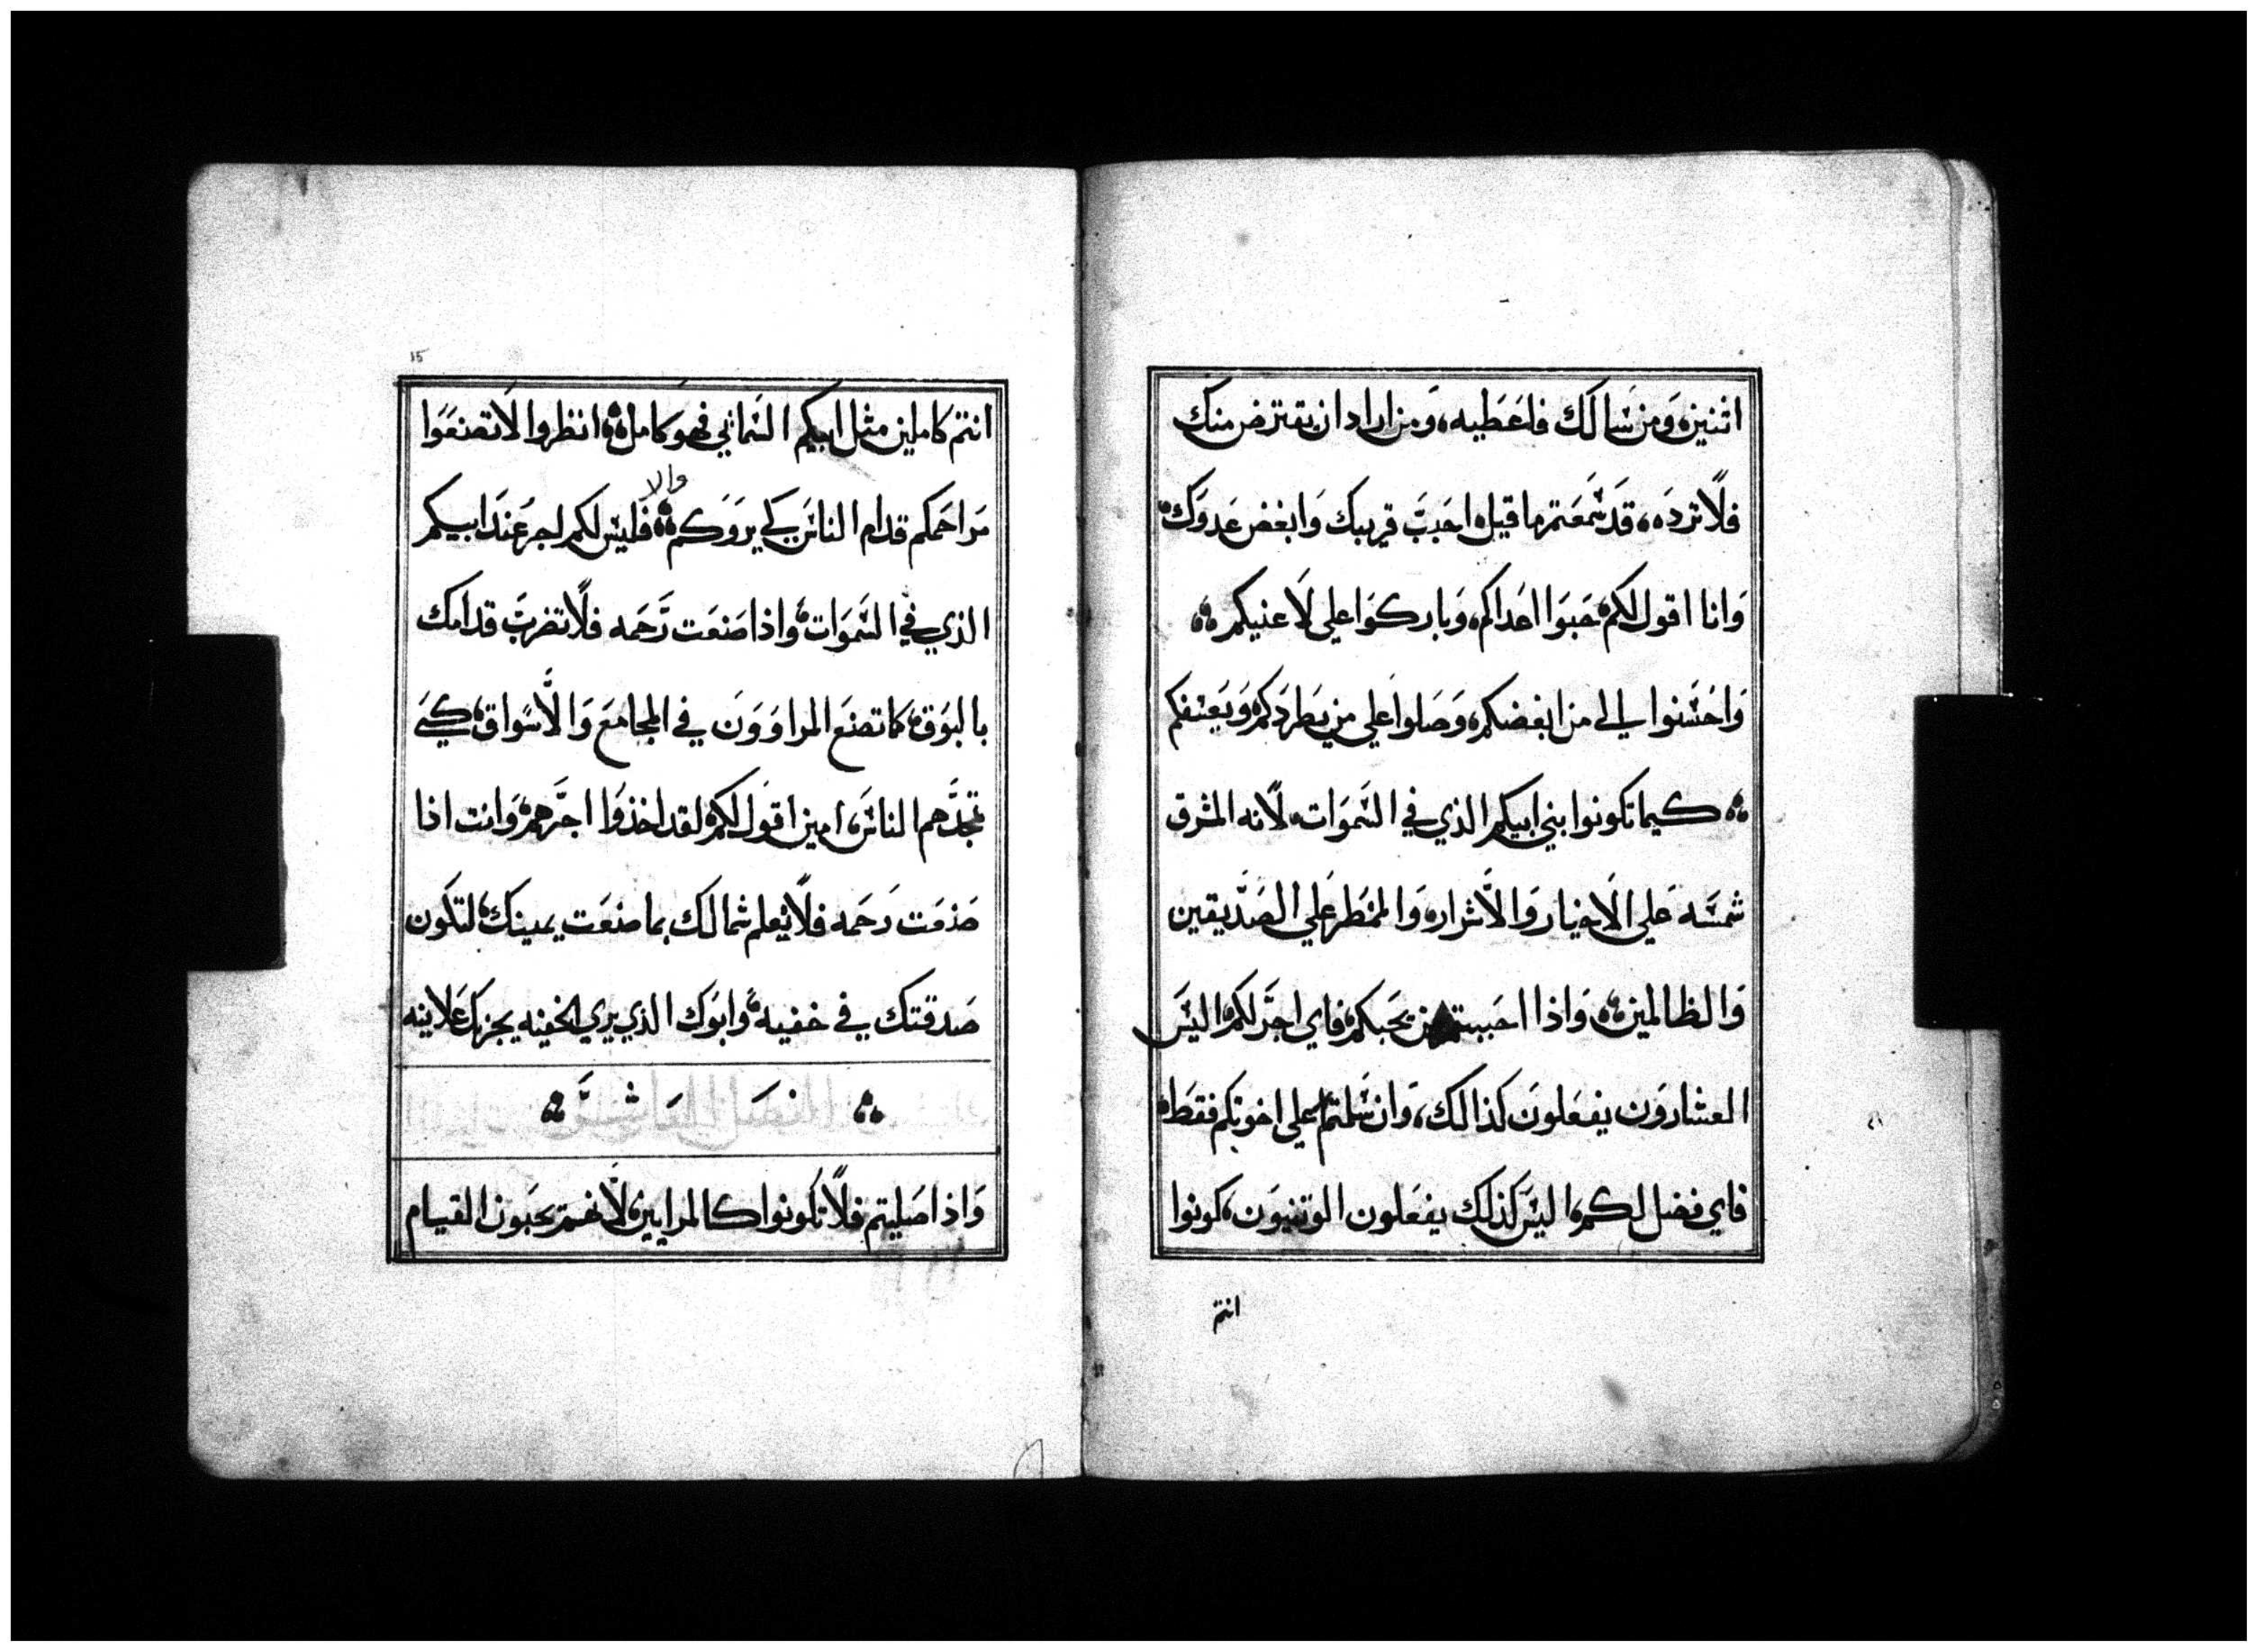 اثنين ومن سَالك فاعَطيه، وَمن اراد ان يقترض منك
فلاً ترده، قدَ سَمَعتم ما قيل احَببَ قريبك وَابغض عَدوَك
وَانا اقول لكم حَبوَا اعَداكم، وَباركوَا علي لاَعنيكم
وَاحَسَنوا الي من ابغضكم، وَصَلوا عَلي من يطردَكم وَيَعَنفكم
كيما تكونوا بني ابيكم الذي في السَموَات، لاًنه المشرق
شمسَه عَلي الاَخيار وَالاَشرار، وَالممَطر عَلي الصَدَيقين
وَالظالمين وَاذا احَببتم من يحَبكم، فاي اجرَ لكم اليسَ
العشاروَن يفعَلونَ كذالك، وَان سَلمتم علي اخوتكم فقطَ
فاي فضل لكم، اليسَ كذلك يفعَلون الوثنيوَن، كونوا
انتم
15
انتم كاملين مثل ابيكم السَمائي فهو كامل، انظروا لاَ تصنعَوَا
مَراحَمكم قدام الناسَ كي يروَكم والا فليسَ لكم اجر عَندَ ابيكم
الذي في السَموَات، وَاذا صَنعَت رَحَمه فلاً تضربَ قدامك
بالبوَق، كما تصنعَ المراووَن في المجامعَ وَالاَسَواق، كيَ
تمجدَهم الناسَ، امين اقوَل لكم لقد اخذوَا اجرَهم، وَانت اذا
صَنعَت رَحَمه فلاً تعلم شمالك بما صَنعَت يمينك، لتكَون
صَدقتك في خفيه، وَابوَك الذي يري الخفيه يجزيك عَلانيه
وَاذا صَليتم فلاً تكَونوا كالمرايين، لاَنهم يحَبون القيام